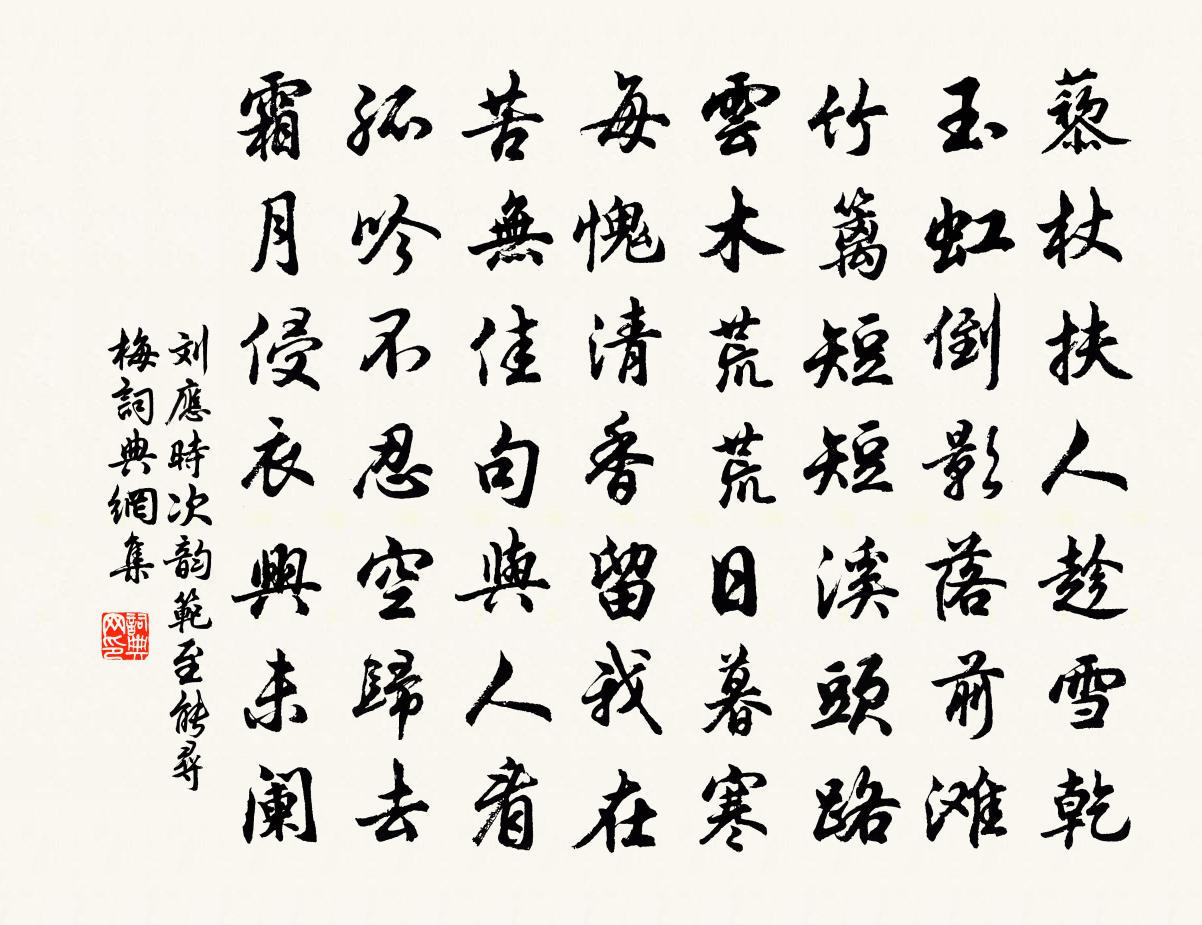 藜杖扶人趁雪乾
玉虹倒影落前滩
竹篱短短溪頭路
雲木荒荒日暮寒
每愧清香留我在
苦無佳句與人看
孤吟不忍空歸去
霜月侵衣興未阑
刘應時次韵範至能尋
梅詞典網集
詞典
网印